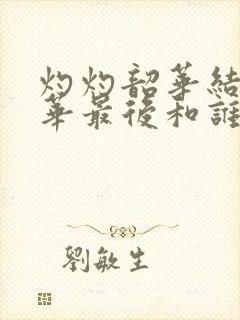 灼灼韶華結
華最後和誰
劉敏生